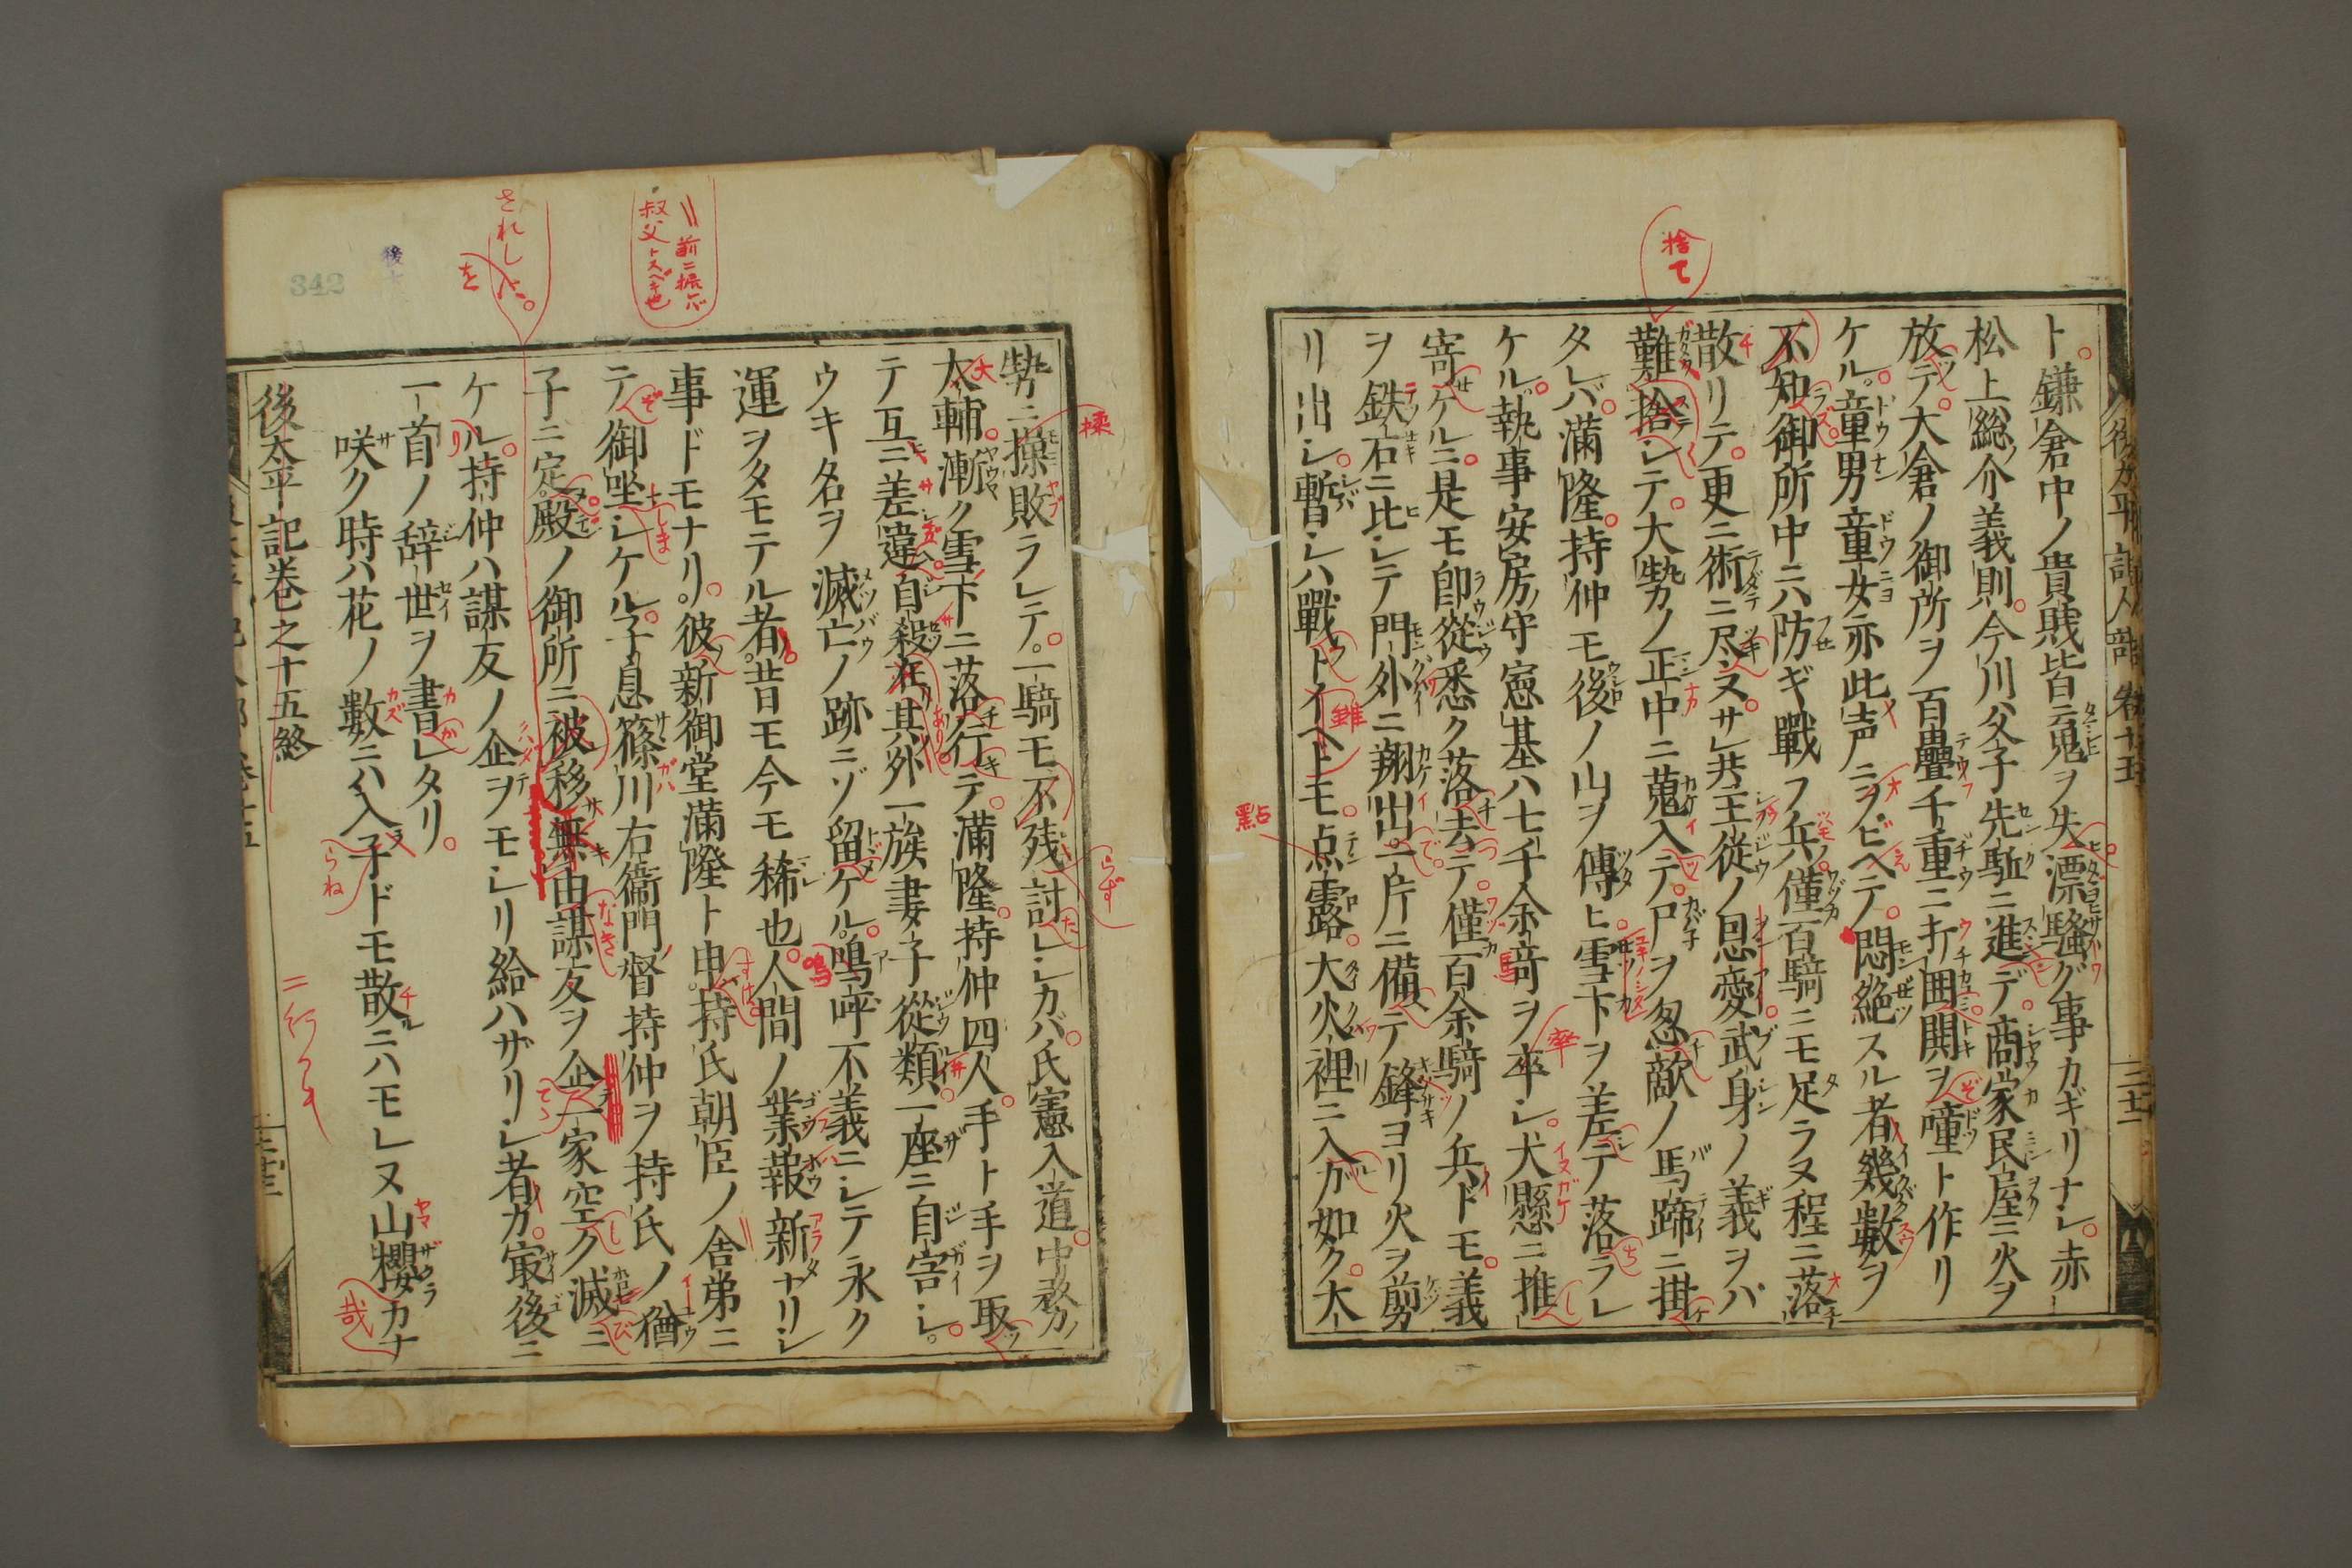 ト鎌倉中ノ貴賎皆云鬼ヲ失漂騒グ事カギリナシ赤
松上総介義則今川父子先駈ニ進デ商家民屋ニ火ヲ
放テ大倉ノ御所ヲ百疊千重ニ打囲開ヲ噇ト作リ
ケル童男童女亦此声ニヲビヘテ悶絶スル者幾数ヲ
不知御所中ニハ防ギ戰フ兵僅百騎ニモ足ラヌ程ニ落
散リテ更ニ術ニ尽ヌサレ共主從ノ恩愛武身ノ義ヲバ
難捨シテ大勢ノ正中ニ蒐入テ尸ヲ忽敵ノ馬蹄ニ掛
タレバ満隆持仲モ後ノ山ヲ傳ヒ雪下ヲ差テ落ラレ
ケル執事安房守憲基ハ七千余竒ヲ卒シ犬懸ニ推
寄ケルニ是モ郎從悉ク落去テ僅百余騎ノ兵ドモ義
ヲ鉄石ニ比シテ門外ニ翔出一片ニ備テ鋒ヨリ火ヲ剪
リ出シ暫シハ戰トイヘトモ点露大火裡ニ入ガ如ク大
勢ニ揉敗ラレテ一騎モ不残討レシカバ氏憲入道中務ノ
太輔漸ク雪下ニ落行テ満隆持仲四人手ト手ヲ取
テ互ニ差違自殺在其外一族妻子從類一座ニ自害シ
ウキ名ヲ滅亡ノ跡ニゾ留ケル嗚呼不義ニシテ永ク
運ヲタモテル者昔モ今モ稀也人間ノ業報新ナリシ
事ドモナリ彼新御堂満隆ト申持氏朝臣ノ舎弟ニ
テ御坐シケル子息篠川右衞門督持仲ヲ持氏ノ猶
子ニ定殿ノ御所ニ被移無由謀友ヲ企一家空ク滅ニ
ケル持仲ハ謀友ノ企ヲモシリ給ハザリシ者カ冣後ニ
一首ノ辞世ヲ書レタリ
咲ク時ハ花ノ數ニハ入子ドモ散ニハモレヌ山櫻カナ
後太平記巻之十五終
捨て
雖
點
率
揉
らず
前ニ據レバ
叔父トスベキ也
されしに。
を
嗚
らね
哉
二行アキ
342